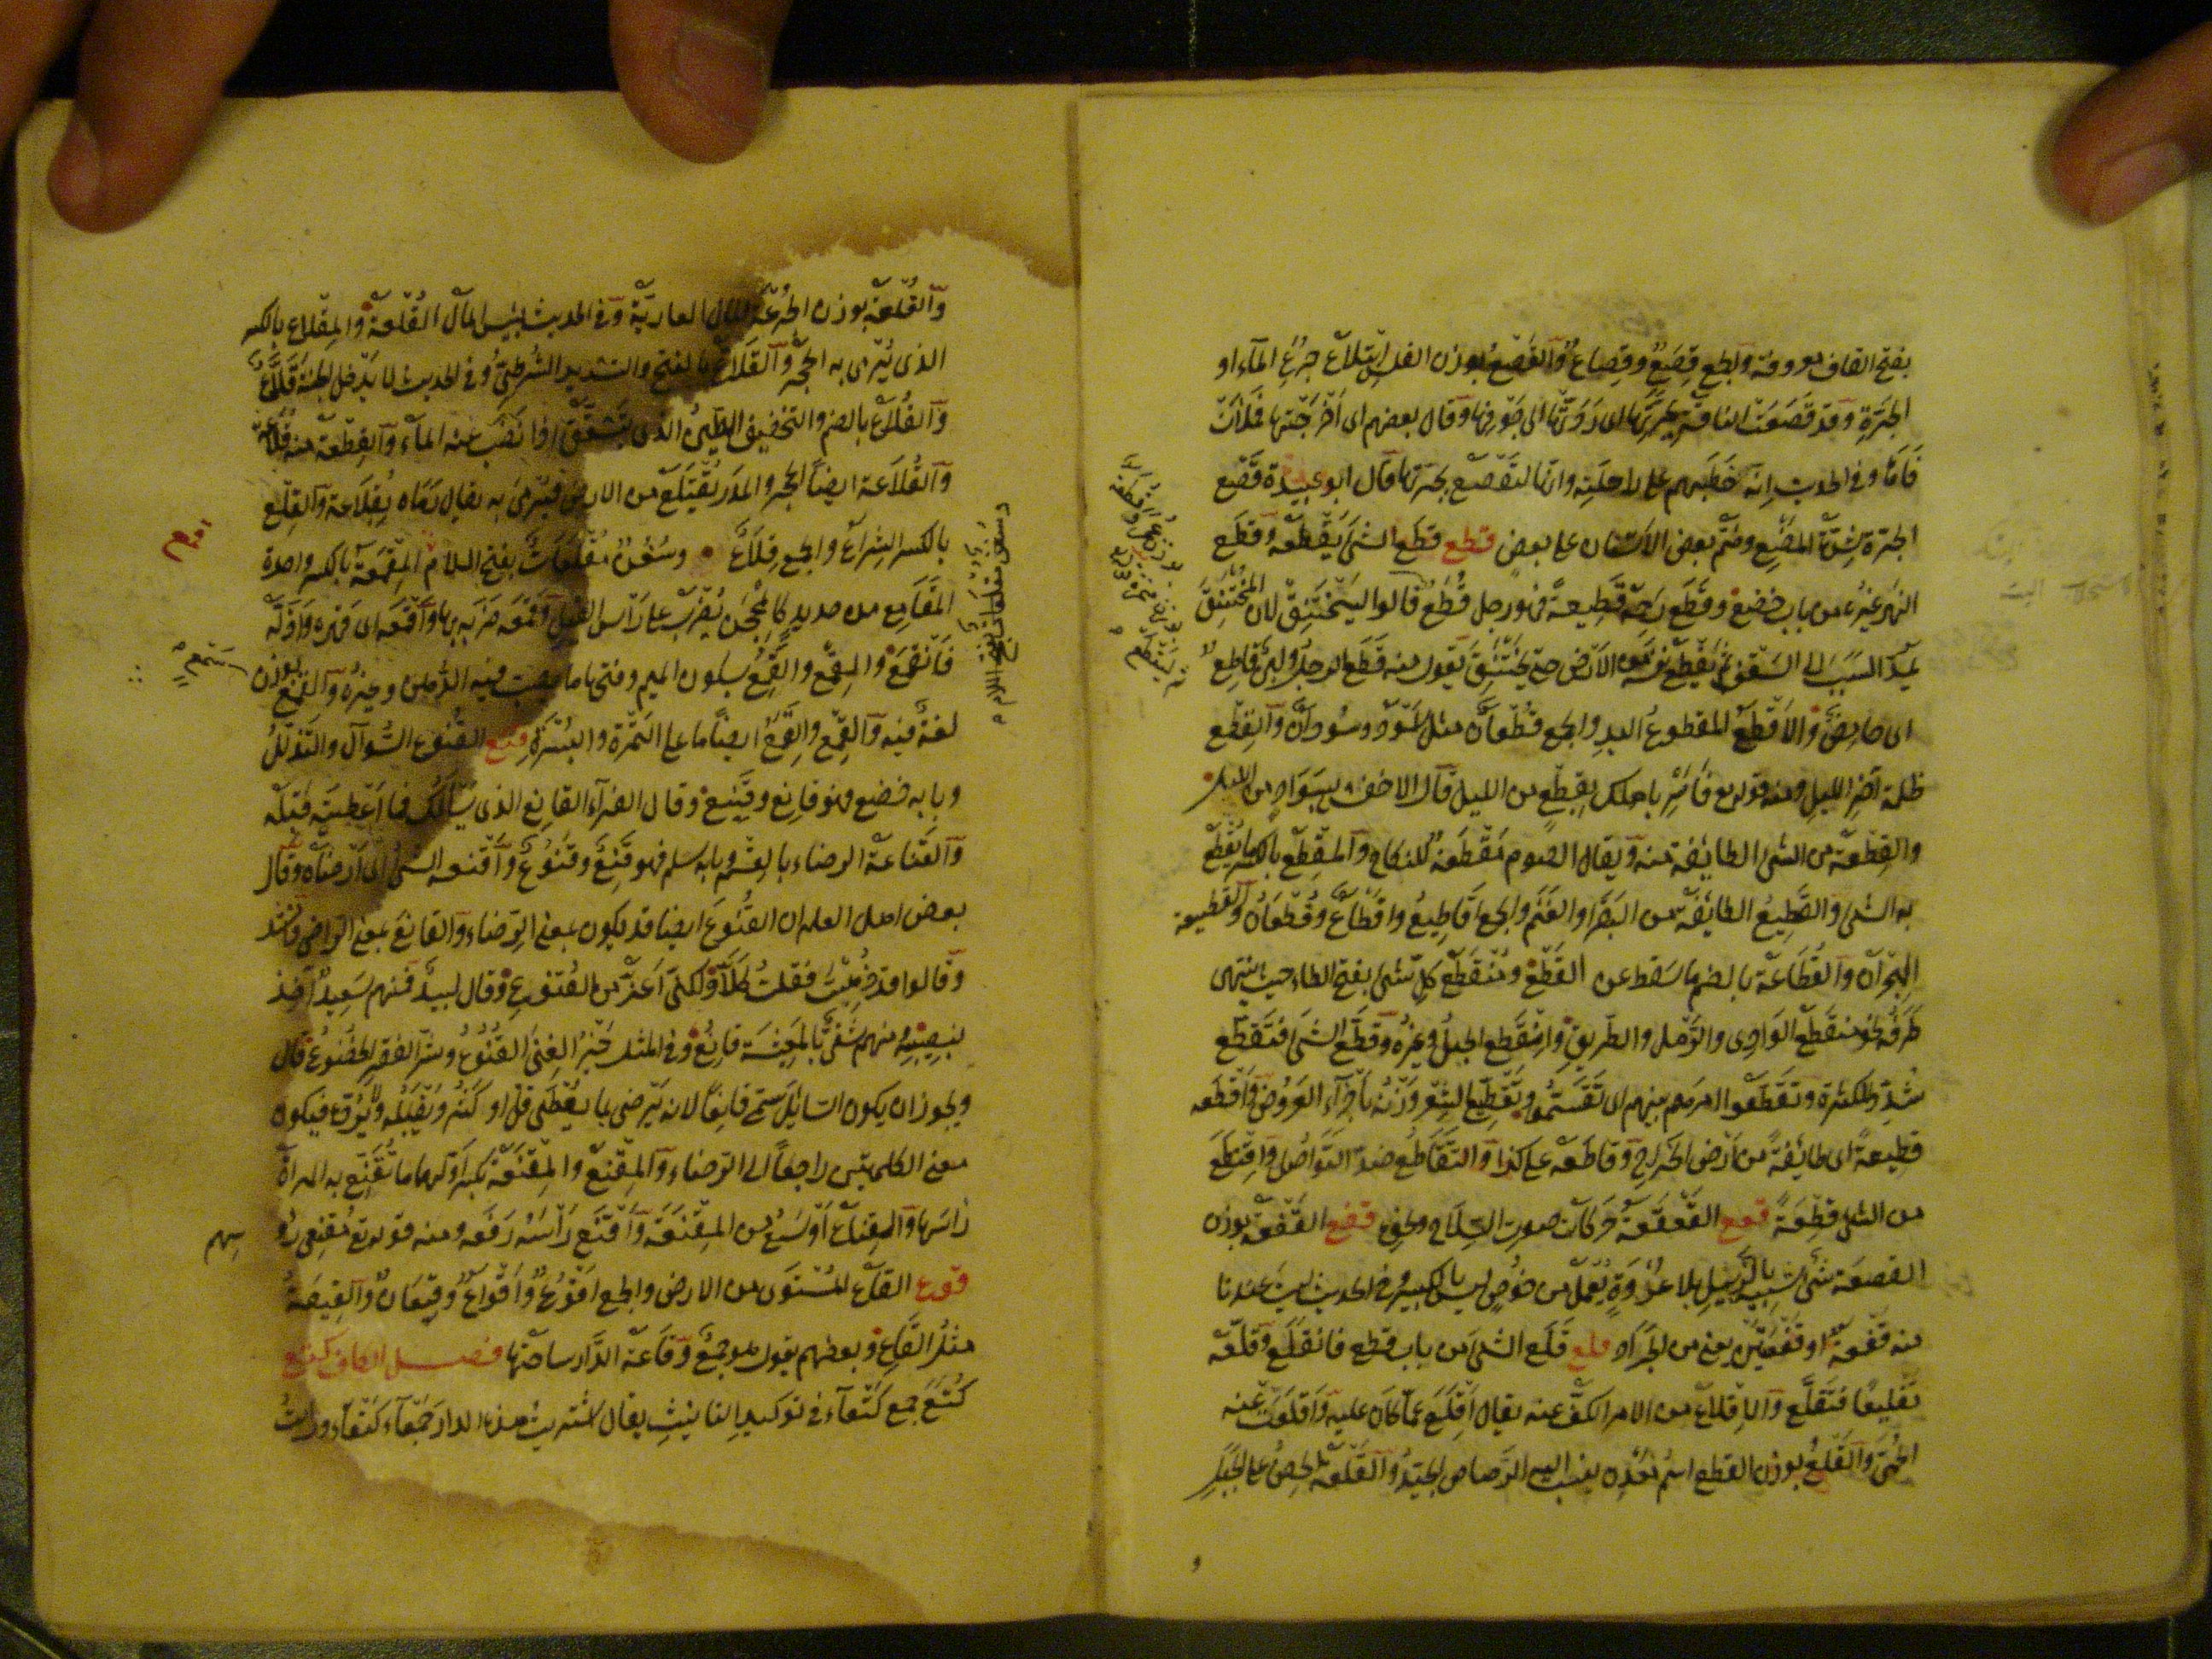 بفتح القاف معروفة والجمع قصع وقصاع والقصع بوزن الفلس ابتلاع جرع الماء او
الجرة وقد قصعت الناقة بجرتها اى ردتها الى جوفها وقال بعضهم اى اخرجتها فملأت
فاها وفى الحديث انه خطبهم على راحلته وانها لتقصع بجرتها قال ابو عبيدة قصع
الجرة شدة المضغ وضم بعض الاسنان على بعض قطع قطع الشئ يقطعه وقطع
النهر عبره من باب خضع وقطع رحمه قطيعة فهو رجل قطع قالوا ليختنق لان المختنق
يمد السبب الى السقف ثم يقطع نفسه من الارض حتى يختنق تقول منه قطع الرجل ولبن قاطع
اى حامض والاقطع المقطوع اليد والجمع قطعان مثل اسود وسودان والقطع
ظلمة اخر الليل ومنه قوله تع فأسر باهلك بقطع من الليل قال الاخفش بسواد من الليل
والقطعة من الشئ الطائفة منه ويقال الصوم مقطعة للنكاح والمقطع بالكسر ما يقطع
به الشئ والقطيع الطائفة من البقر او الغنم والجمع اقاطيع واقطاع وقطعان والقطيعة
الهجران والقطاعة بالضم ما سقط عن القطع ومنقطع كل شئ بفتح الطاء حيث ينتهى
طرفه نحو منقطع الوادى والرمل والطريق وانقطع الحبل وغيره وقطع الشئ فتقطع
شدد للكثرة وتقطعوا امرهم بينهم اى تقسموه وتقطيع الشعر وزنه باجزاء العروض واقطعه
قطيعة اى طائفة من ارض الخراج وقاطعه على كذا والتقاطع ضد التواصل واقتطع
من الشئ قطعة قعع القعقعة حركات صوت السلاح ونحوه قفع القفعة بوزن
القصعة شئ شبيه بالزبيل بلا عروة يعمل من خوص ليس بالكبير وفى الحديث ليت عندنا
منه قفعة او قفعتين يعنى من الجراد قلع قلع الشئ من باب قطع فانقلع وقلعه
تقليعا فتقلع والاقلاع من الامر الكف عنه يقال اقلع عما كان عليه واقلعت عنه
الحمى والقلع بوزن القطع اسم معدن ينسب اليه الرصاص الجيد والقلعة الحصن على الجبل
والقلعة بوزن الجرعة المال العارية وفى الحديث بئس المال القلعة والمقلاع بالكسر
الذى يرمى به الحجر والقلاع بالفتح والتشديد الشرطى وفى الحديث لا يدخل الجنة قلاع
والقلاع بالضم والتخفيف الطين الذى يتشقق اذا نضب عنه الماء والقطعة منه قلاعة
والقلاعة ايضا الحجر والمدر يقتلع من الارض فيرمى به يقال رماه بقلاعة والقلع
بالكسر الشراع والجمع قلاع وسفن مقلعات بفتح اللام المقمعة بالكسر واحدة
المقامع من حديد كالمحجن يضرب على رأس الفيل وقمعه ضربه بها واقمعه اى قهره واذله
فانقمع والقمع والقمع بسكون الميم وفتحها ما يصب فيه الدهن وغيره والقمع بوزن
لغة فيه والقمع والقمع ايضا ما على التمرة والبسرة قنع القنوع السؤال والتذلل
وبابه خضع فهو قانع وقنيع وقال الفراء القانع الذى يسألك فما اعطيته قبله
والقناعة الرضاء بالقسم وبابه سلم فهو قنع وقنوع واقنعه الشئ اى ارضاه وقال
بعض اهل العلم ان القنوع ايضا قد يكون بمعنى الرضاء والقانع بمعنى الراضى وانشد
وقالوا قد زهيت فقلت كلا ولكنى اعزنى القنوع وقال لبيد فمنهم سعيد اخذ
بنصيبه ومنهم شقى بالمعيشة قانع وفى المثل خير الغنى القنوع وشر الفقر الخضوع قال
ويجوز ان يكون السائل سمى قانعا لانه يرضى بما يعطى قل او كثر ويقبله ولا يرده فيكون
معنى الكلمتين راجعا الى الرضاء والمقنع والمقنعة بكسر اولهما ما تقنع به المرأة
رأسها والقناع اوسع من المقنعة واقنع رأسه رفعه ومنه قوله تع مقنعى رؤ
سهم
قوع القاع المستوى من الارض والجمع اقوع واقواع وقيعان والقيعة
مثل القاع وبعضهم يقول هو جمع وقاعة الدار ساحتها فصل الكاف كتع
كتع جمع كتعاء فى توكيد التانيث يقال اشتريت هذه الدار جمعاء كتعاء ورأيت